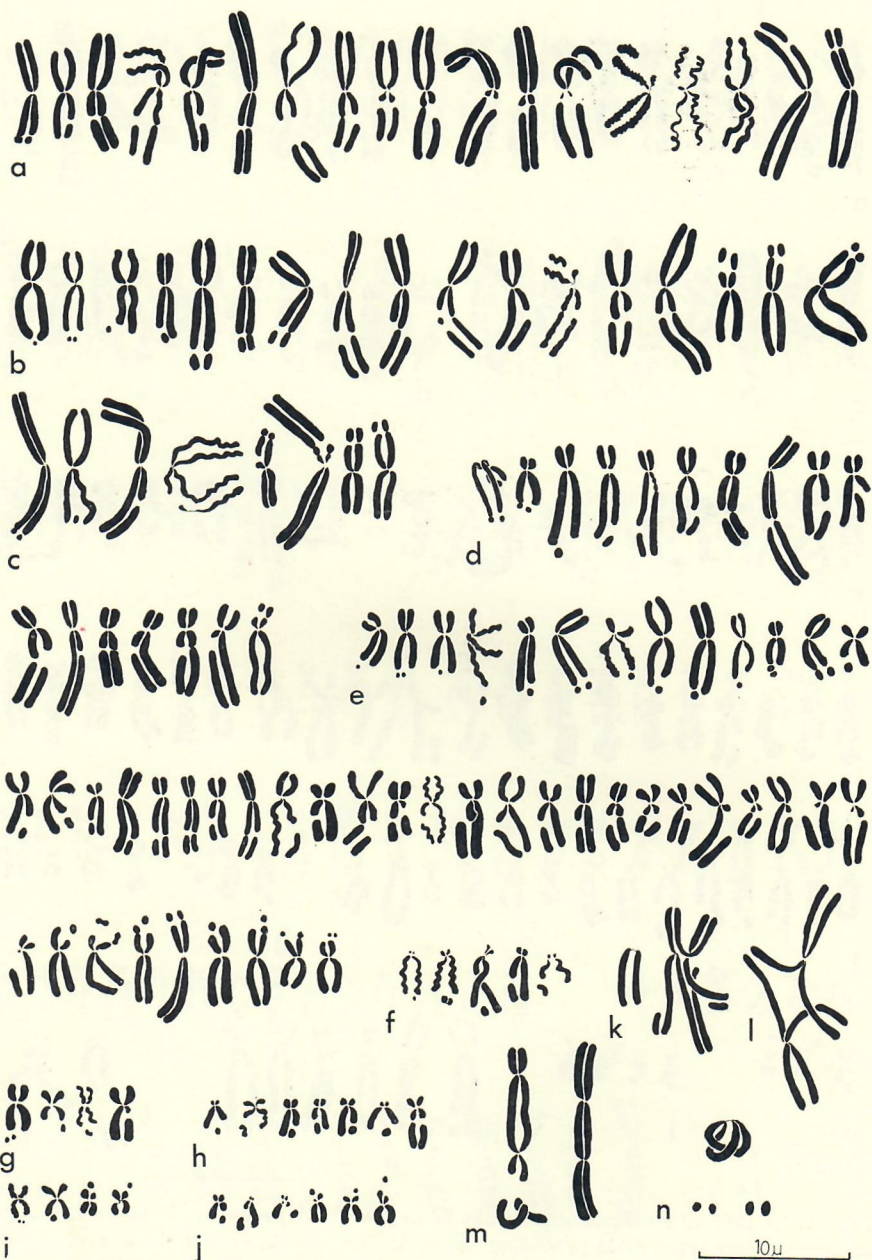 a
b
c
d
e
f
k
l
g
h
i
j
m
n
10µ